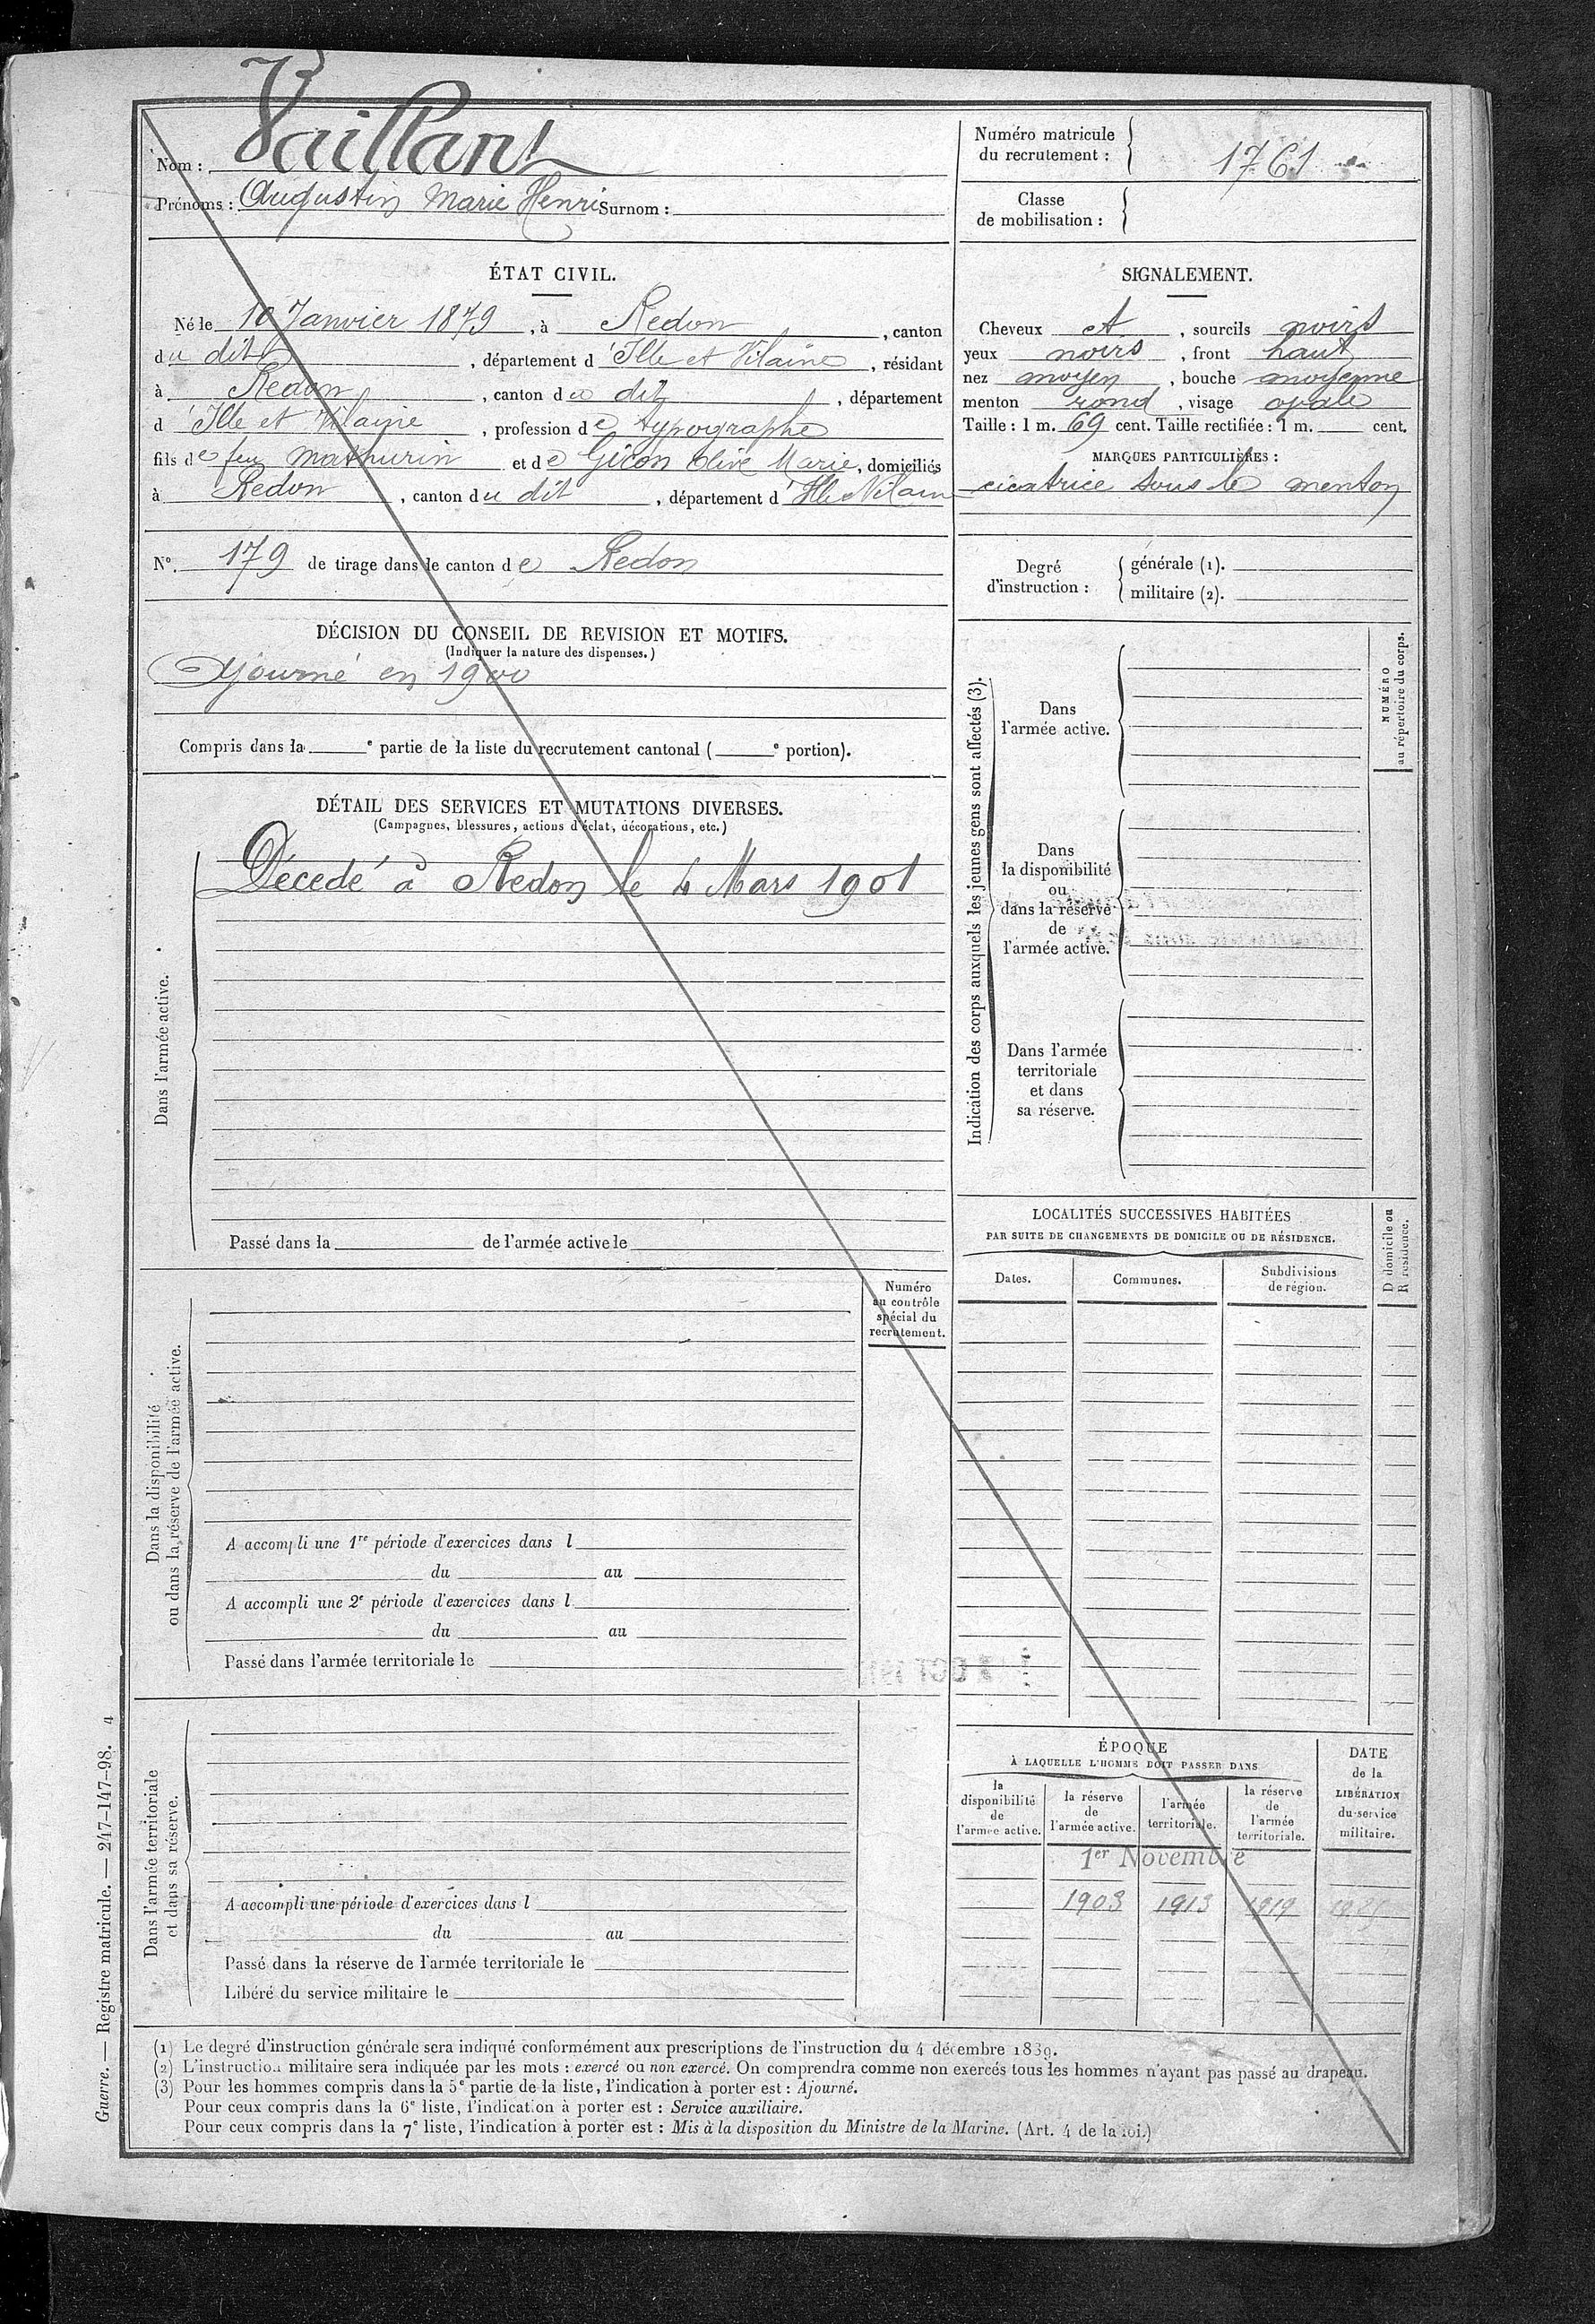 Nom : Vaillant
Prénoms : Augustin Marie Henri Surnom :
Numéro matricule du recrutement : 1761
Classe de mobilisation :
ÉTAT CIVIL.
Né le 10 Janvier 1879, à Redon, canton
du dit, département d'Ille et Vilaine, résidant
à Redon, canton du dit, département
d'Ille et Vilaine, profession de typographe
fils de feu Mathurin et de Gicon Olive Marie, domiciliés
à Redon, canton du dit, département d'Ille Vilaine
N° 179 de tirage dans le canton de Redon
SIGNALEMENT.
Cheveux et, sourcils noirs
yeux noirs, front haut
nez moyen, bouche moyenne
menton rond, visage ovale
Taille : 1 m. 69 cent. Taille rectifiée : 1 m. cent.
MARQUES PARTICULIÈRES :
cicatrice sous le menton
Degré d'instruction :
générale (1).
militaire (2).
DÉCISION DU CONSEIL DE REVISION ET MOTIFS.
(Indiquer la nature des dispenses.)
Ajourné en 1900
Compris dans la e partie de la liste du recrutement cantonal ( e portion).
DÉTAIL DES SERVICES ET MUTATIONS DIVERSES.
(Campagnes, blessures, actions d'éclat, décorations, etc.)
Dans l'armée active.
Décédé à Redon le 4 Mars 1901
Passé dans la de l'armée active le
Indication des corps auxquels les jeunes gens sont affectés (3).
Dans
l'armée active.
Dans
la disponibilité
ou
dans la réserve
de
l'armée active.
Dans l'armée
territoriale
et dans
sa réserve.
NUMÉRO
au répertoire du corps.
LOCALITÉS SUCCESSIVES HABITÉES
PAR SUITE DE CHANGEMENTS DE DOMICILE OU DE RÉSIDENCE.
Dates.
Communes.
Subdivisions
de région.
D domicile ou
R résidence.
Numéro
au contrôle
spécial du
recrutement.
Dans la disponibilité
ou dans la réserve de l'armée active.
A accompli une 1re période d'exercices dans l
du au
A accompli une 2e période d'exercices dans l
du au
Passé dans l'armée territoriale le
Dans l'armée territoriale
et dans sa réserve.
A accompli une période d'exercices dans l
du au
Passé dans la réserve de l'armée territoriale le
Libéré du service militaire le
ÉPOQUE
À LAQUELLE L'HOMME DOIT PASSER DANS
la
disponibilité
de
l'armée active.
la réserve
de
l'armée active.
l'armée
territoriale.
la réserve
de
l'armée
territoriale.
DATE
de la
LIBÉRATION
du service
militaire.
1er Novembre
1903 1913 1919
(1) Le degré d'instruction générale sera indiqué conformément aux prescriptions de l'instruction du 4 décembre 1889.
(2) L'instruction militaire sera indiquée par les mots : exercé ou non exercé. On comprendra comme non exercés tous les hommes n'ayant pas passé au drapeau.
(3) Pour les hommes compris dans la 5e partie de la liste, l'indication à porter est : Ajourné.
Pour ceux compris dans la 6e liste, l'indication à porter est : Service auxiliaire.
Pour ceux compris dans la 7e liste, l'indication à porter est : Mis à la disposition du Ministre de la Marine. (Art. 4 de la loi.)
Guerre. — Registre matricule. — 247-147-98. 4